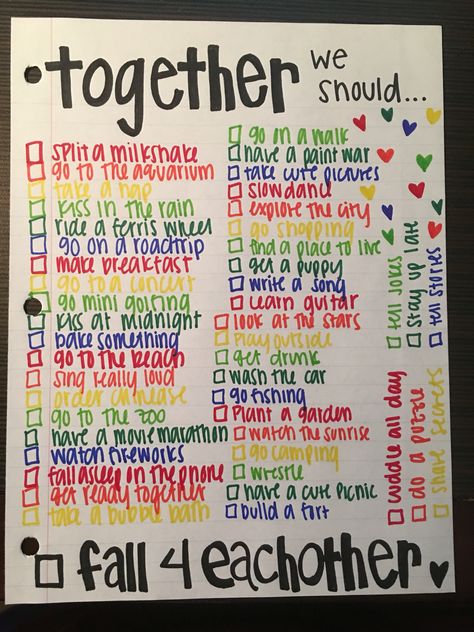 together we should...
split a milkshake
go to the aquarium
take a nap
kiss in the rain
ride a ferris wheel
go on a roadtrip
make breakfast
go to a concert
go mini golfing
kiss at midnight
bake something
go to the beach
sing really loud
order chinese
go to the zoo
have a movie marathon
watch fireworks
fall asleep on the phone
get ready together
take a bubble bath
go on a walk
have a paint war
take cute pictures
slow dance
explore the city
go shopping
find a place to live
get a puppy
write a song
learn guitar
look at the stars
play outside
get drunk
wash the car
go fishing
plant a garden
watch the sunrise
go camping
wrestle
have a cute picnic
build a fort
tell jokes
stay up late
tell stories
cuddle all day
do a puzzle
share secrets
fall 4 eachother